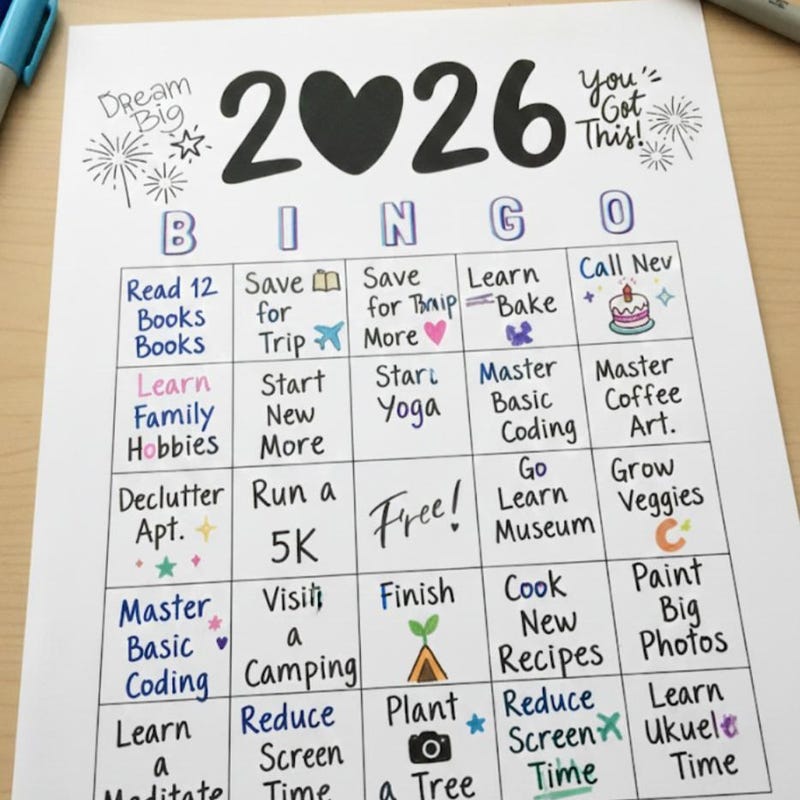 Dream
Big
2026
You
Got
This!
B I N G O
Read 12
Books
Books
Save
for
Trip
Save
for
More
Learn
Bake
Call Nev
Learn
Family
Hobbies
Start
New
More
Start
Yoga
Master
Basic
Coding
Master
Coffee
Art.
Declutter
Apt.
Run a
5K
Free!
Go
Learn
Museum
Grow
Veggies
Master
Basic
Coding
Visit
a
Camping
Finish
Cook
New
Recipes
Paint
Big
Photos
Learn
a
Meditate
Reduce
Screen
Time
Plant
a Tree
Reduce
Screen
Time
Learn
Time